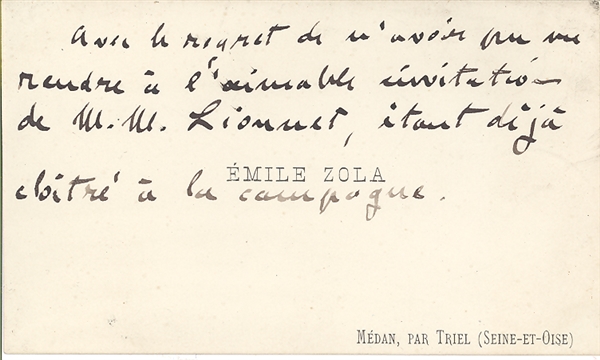 Avec le regret de n'avoir pu me
rendre à l'aimable invitation
de M.M. Lionnet, étant déjà
ÉMILE ZOLA
cloîtré à la campagne.
MÉDAN, PAR TRIEL (SEINE-ET-OISE)